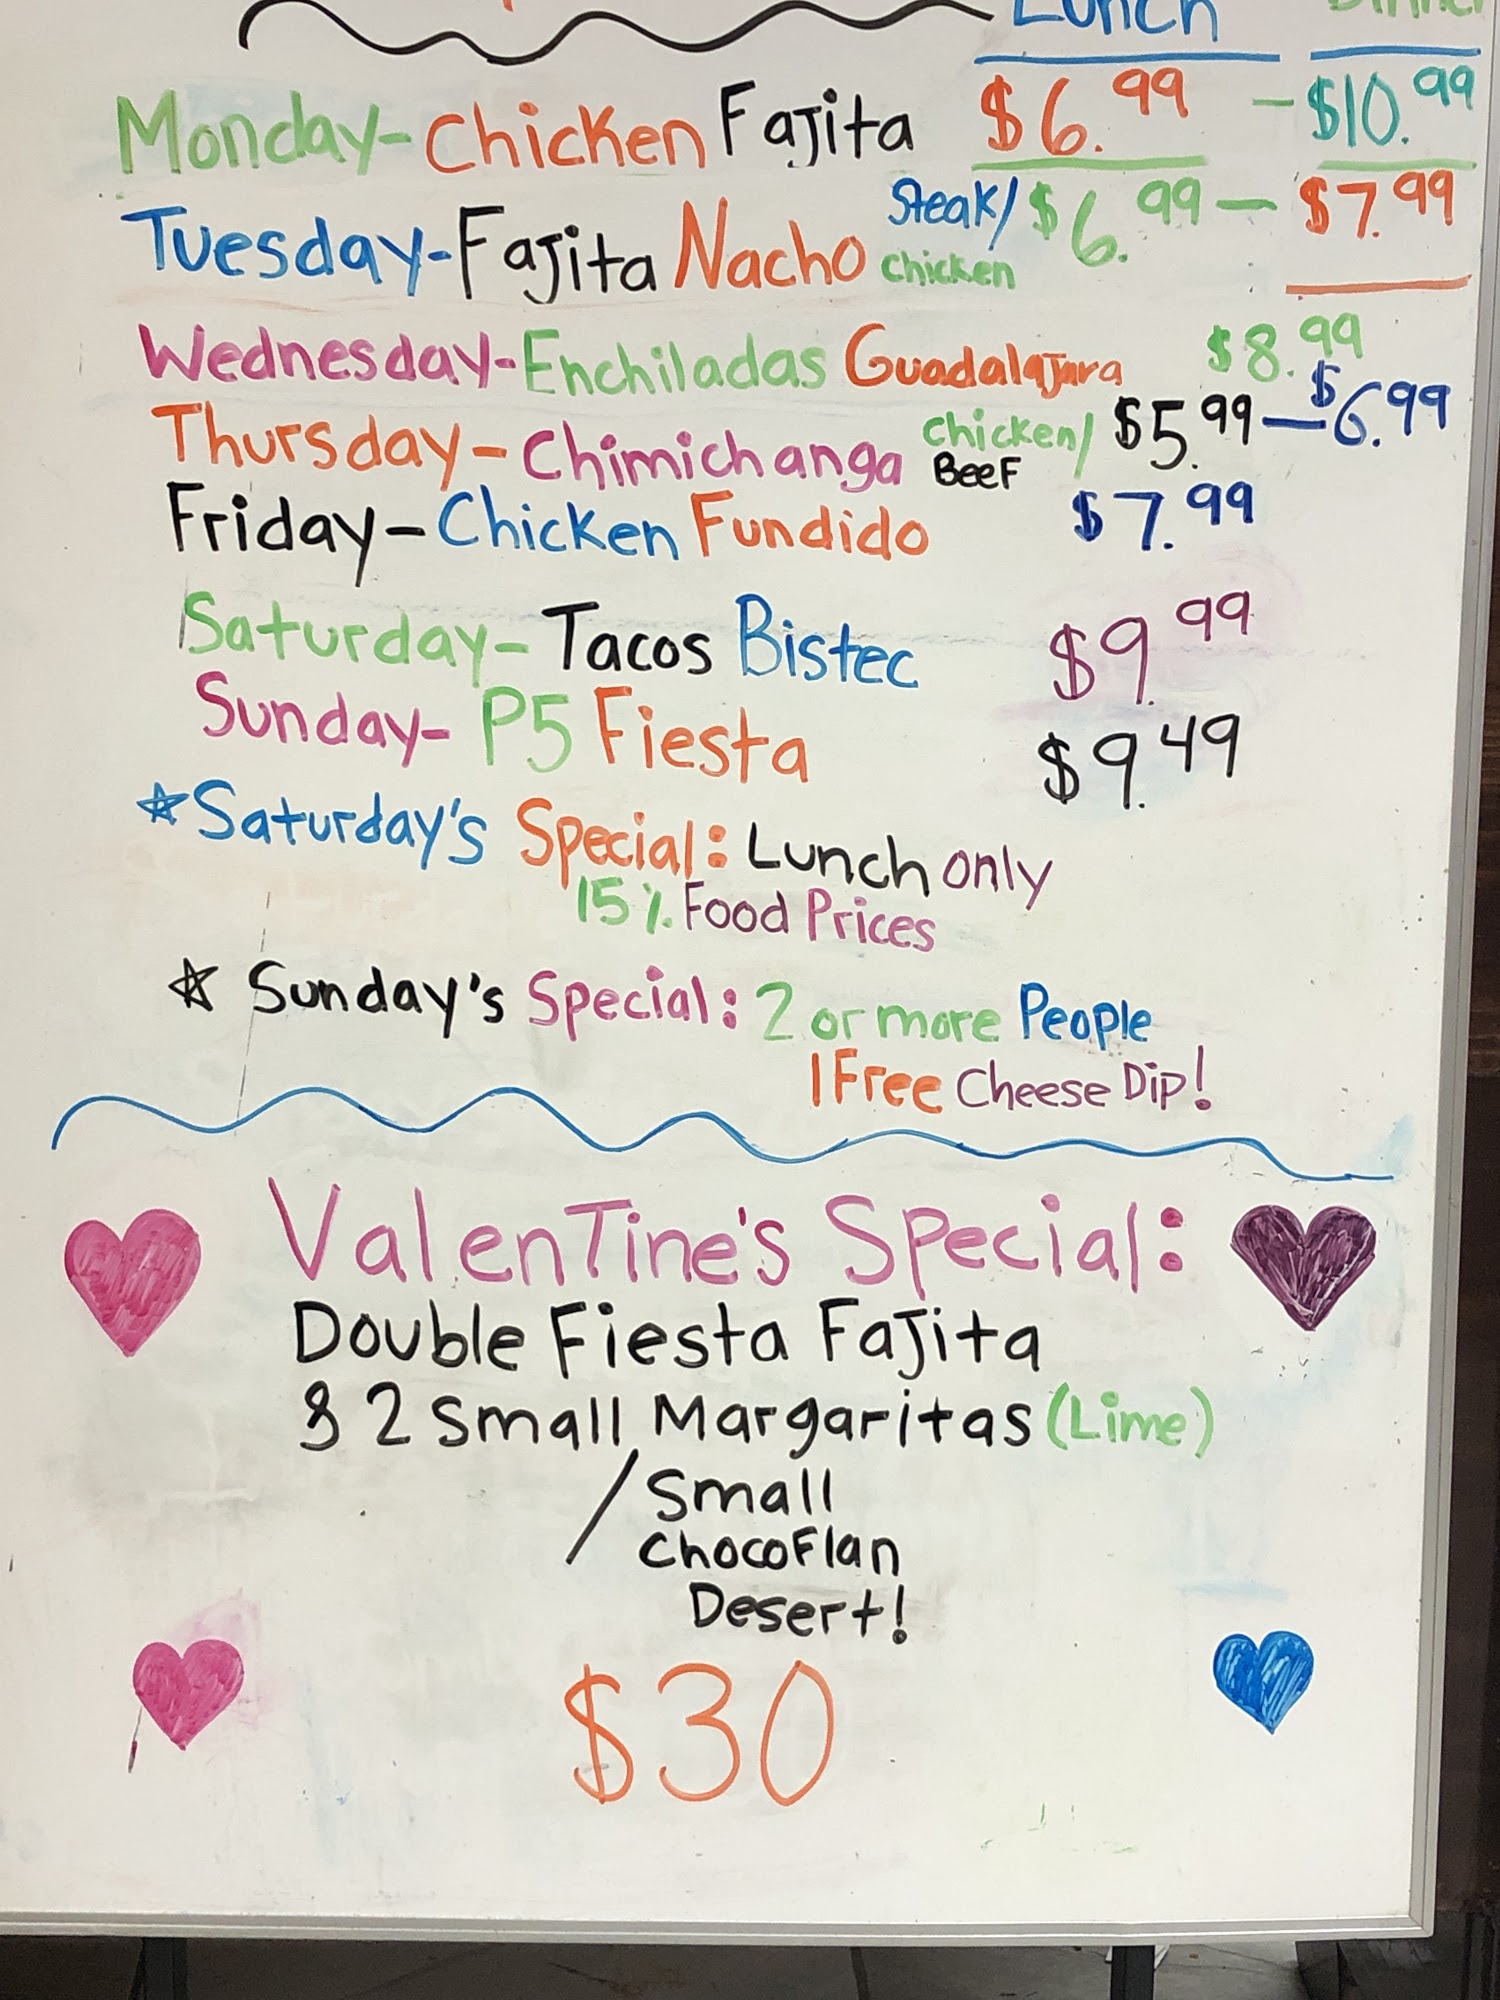 Lunch Dinner
Monday-Chicken Fajita $6.99 - $10.99
Tuesday-Fajita Nacho Steak/ chicken $6.99 - $7.99
Wednesday-Enchiladas Guadalajara $8.99
Thursday-Chimichanga chicken/ Beef $5.99-$6.99
Friday-Chicken Fundido $7.99
Saturday-Tacos Bistec $9.99
Sunday- P5 Fiesta $9.49
☆Saturday's Special: Lunch only
15% Food Prices
☆ Sunday's Special: 2 or more People
1 Free Cheese Dip!
Valentine's Special:
Double Fiesta Fajita
& 2 Small Margaritas (Lime)
/ Small
Chocoflan
Desert!
$30